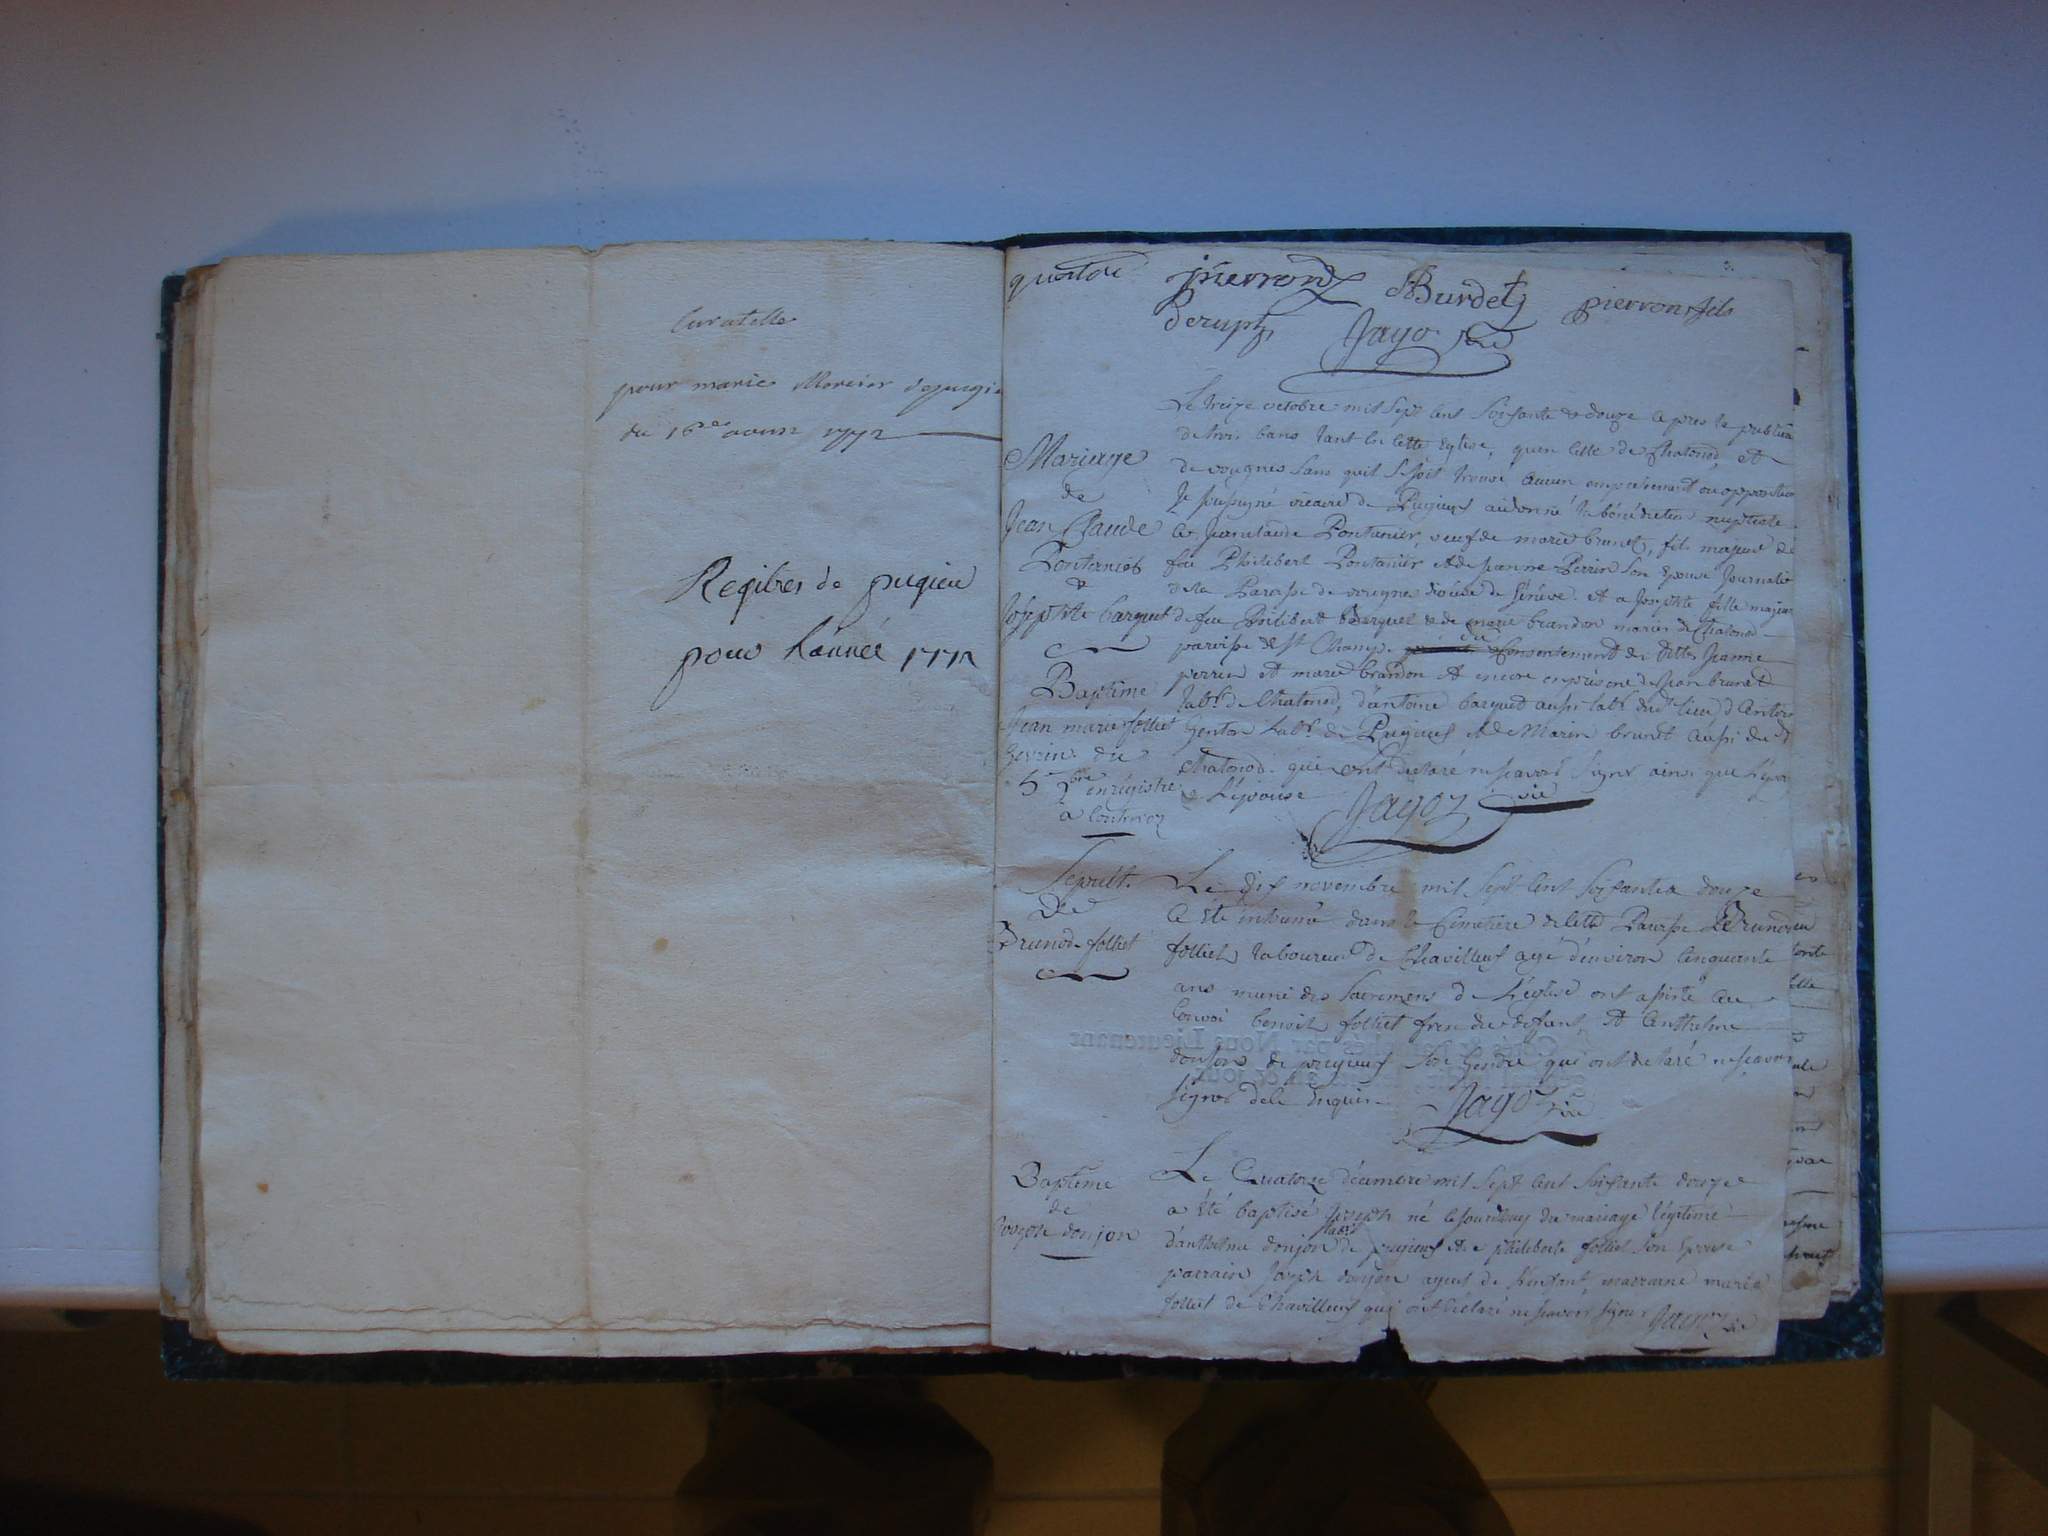 Curatelle
pour marie Mercier de pugieu
du 16 1772
Regitres de pugieu
pour L'année 1772
quatre pierrond Burdet pierron fils
Derupt Jayoz vic
Mariage
de
Jean Claude
Pontanier
&
Josephte barquet
Le treize octobre mil sept cent soixante & douze apres la publica
de trois bans tant en cette Eglise, quen celle de Chatonod, et
de vougnes sans quil se soit trouvé aucun empechement ou opposition
Je soussigné vicaire de Pugieux ai donné la bénédiction nuptiale
a Jean claude Pontanier, veuf de marie brunet, fils majeur de
feu Philibert Pontanier et de jeanne Perrin son Epouse Journalie
de la Paroisse de vougnes diocese de Genève. et a Josephte fille majeur
de feu Philibert Barquet & de marie brandon mariés de Chatonod
paroisse de St Champ. du Consentement des dittes Jeanne
perrin et marie brandon et encore en présence de jean brunet
lab.r de Chatonod, d'antoine barquet aussi lab.r dud.t lieu, d'Antoi
Genton lab.r de Pugieux et de Marin brunet aussi dud
Chatonod. qui ont declaré ne scavoir signer ainsi que l'épou
& L'épouse Jayoz vic
Baptême
Jean marie folliet
du
5 bre enregistré
a
Sepult.
De
Brunod folliet
Le dix novembre mil sept cent soixante & douze
a été inhumé dans le Cimetiere de cette Paroisse Brunod
folliet laboureur de Chavilleux agé d'environ Cinquante
ans muni des Sacremens de L'église ont assisté au
Convoi benoit folliet frere du defunt, et anthelme
donjon de pugieux son Gendre qui ont declaré ne scavoir
signer de ce Enquis. Jayoz vic
Baptême
de
Joseph donjon
Le Quatorze décembre mil sept cent soixante douze
a été baptisé Joseph né le jour du mariage légitime
d'anthelme donjon labr de pugieux et de philiberte folliet son Epouse
parrain Joseph donjon ayeul de l'enfant, marraine marie
folliet de Chavilleux qui ont déclaré ne scavoir signer Jayoz vic